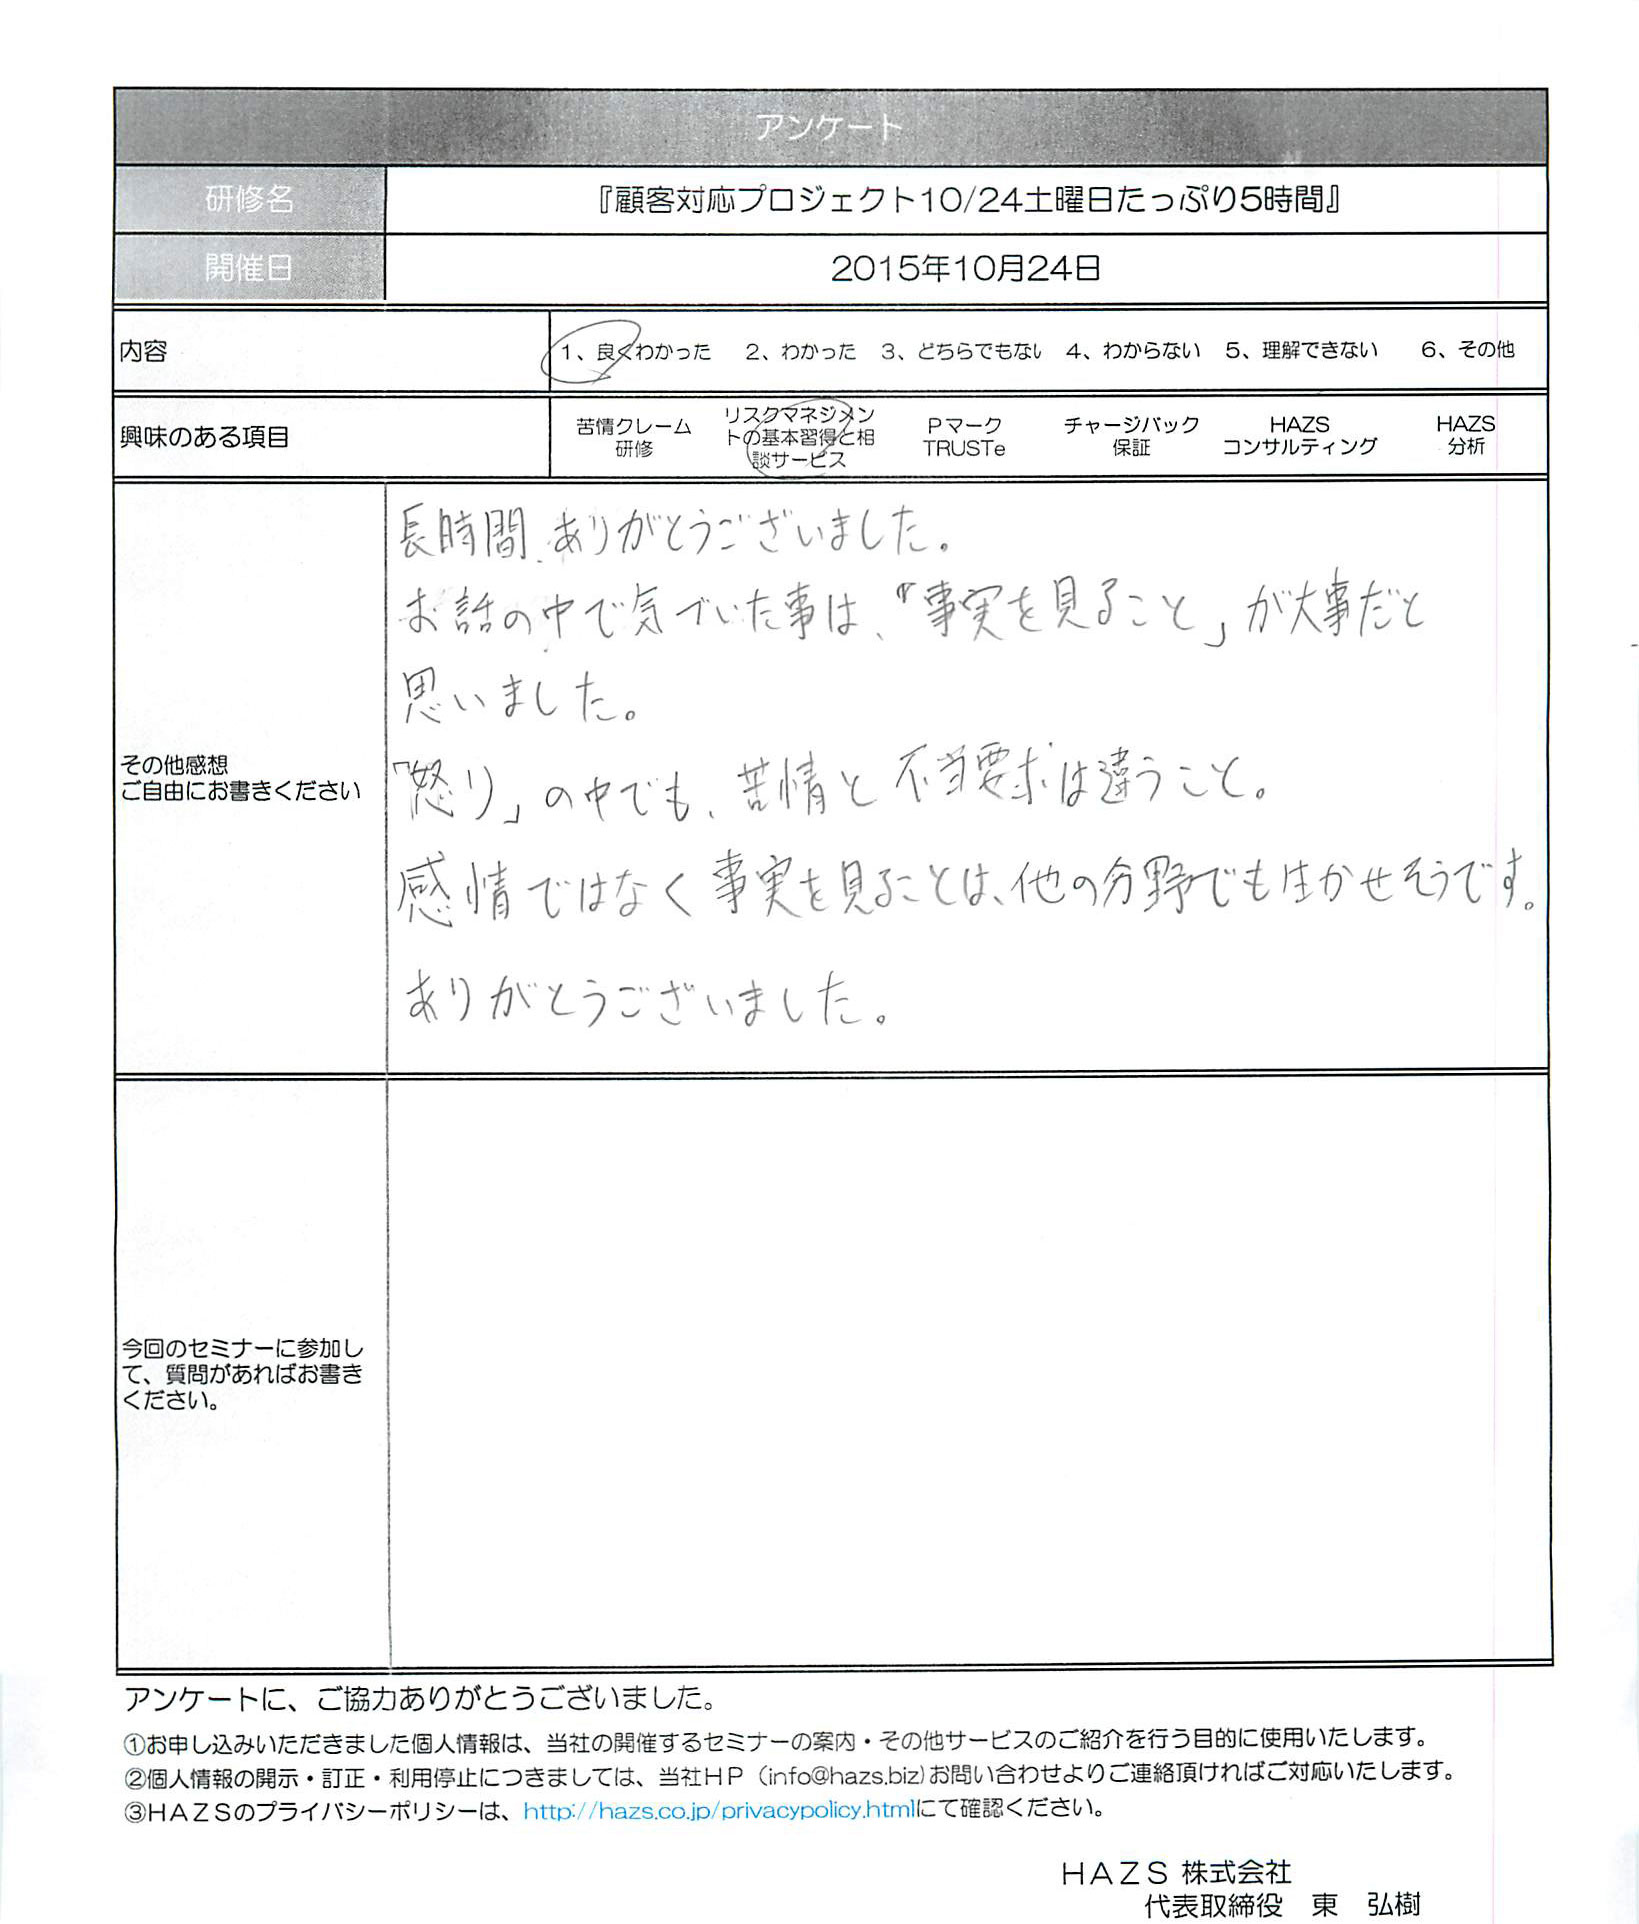 アンケート
研修名
『顧客対応プロジェクト10/24土曜日たっぷり5時間』
開催日
2015年10月24日
内容
1、良くわかった 2、わかった 3、どちらでもない 4、わからない 5、理解できない 6、その他
興味のある項目
苦情クレーム
研修
リスクマネジメン
トの基本習得と相
談サービス
Pマーク
TRUSTe
チャージバック
保証
HAZS
コンサルティング
HAZS
分析
その他感想
ご自由にお書きください
長時間、ありがとうございました。
お話の中で気づいた事は、「事実を見ること」が大事だと
思いました。
「怒り」の中でも、苦情と不当要求は違うこと。
感情ではなく事実を見ることは、他の分野でも生かせそうです。
ありがとうございました。
今回のセミナーに参加し
て、質問があればお書き
ください。
アンケートに、ご協力ありがとうございました。
①お申し込みいただきました個人情報は、当社の開催するセミナーの案内・その他サービスのご紹介を行う目的に使用いたします。
②個人情報の開示・訂正・利用停止につきましては、当社HP(info@hazs.biz)お問い合わせよりご連絡頂ければご対応いたします。
③HAZSのプライバシーポリシーは、http://hazs.co.jp/privacypolicy.htmlにて確認ください。
HAZS 株式会社
代表取締役 東 弘樹